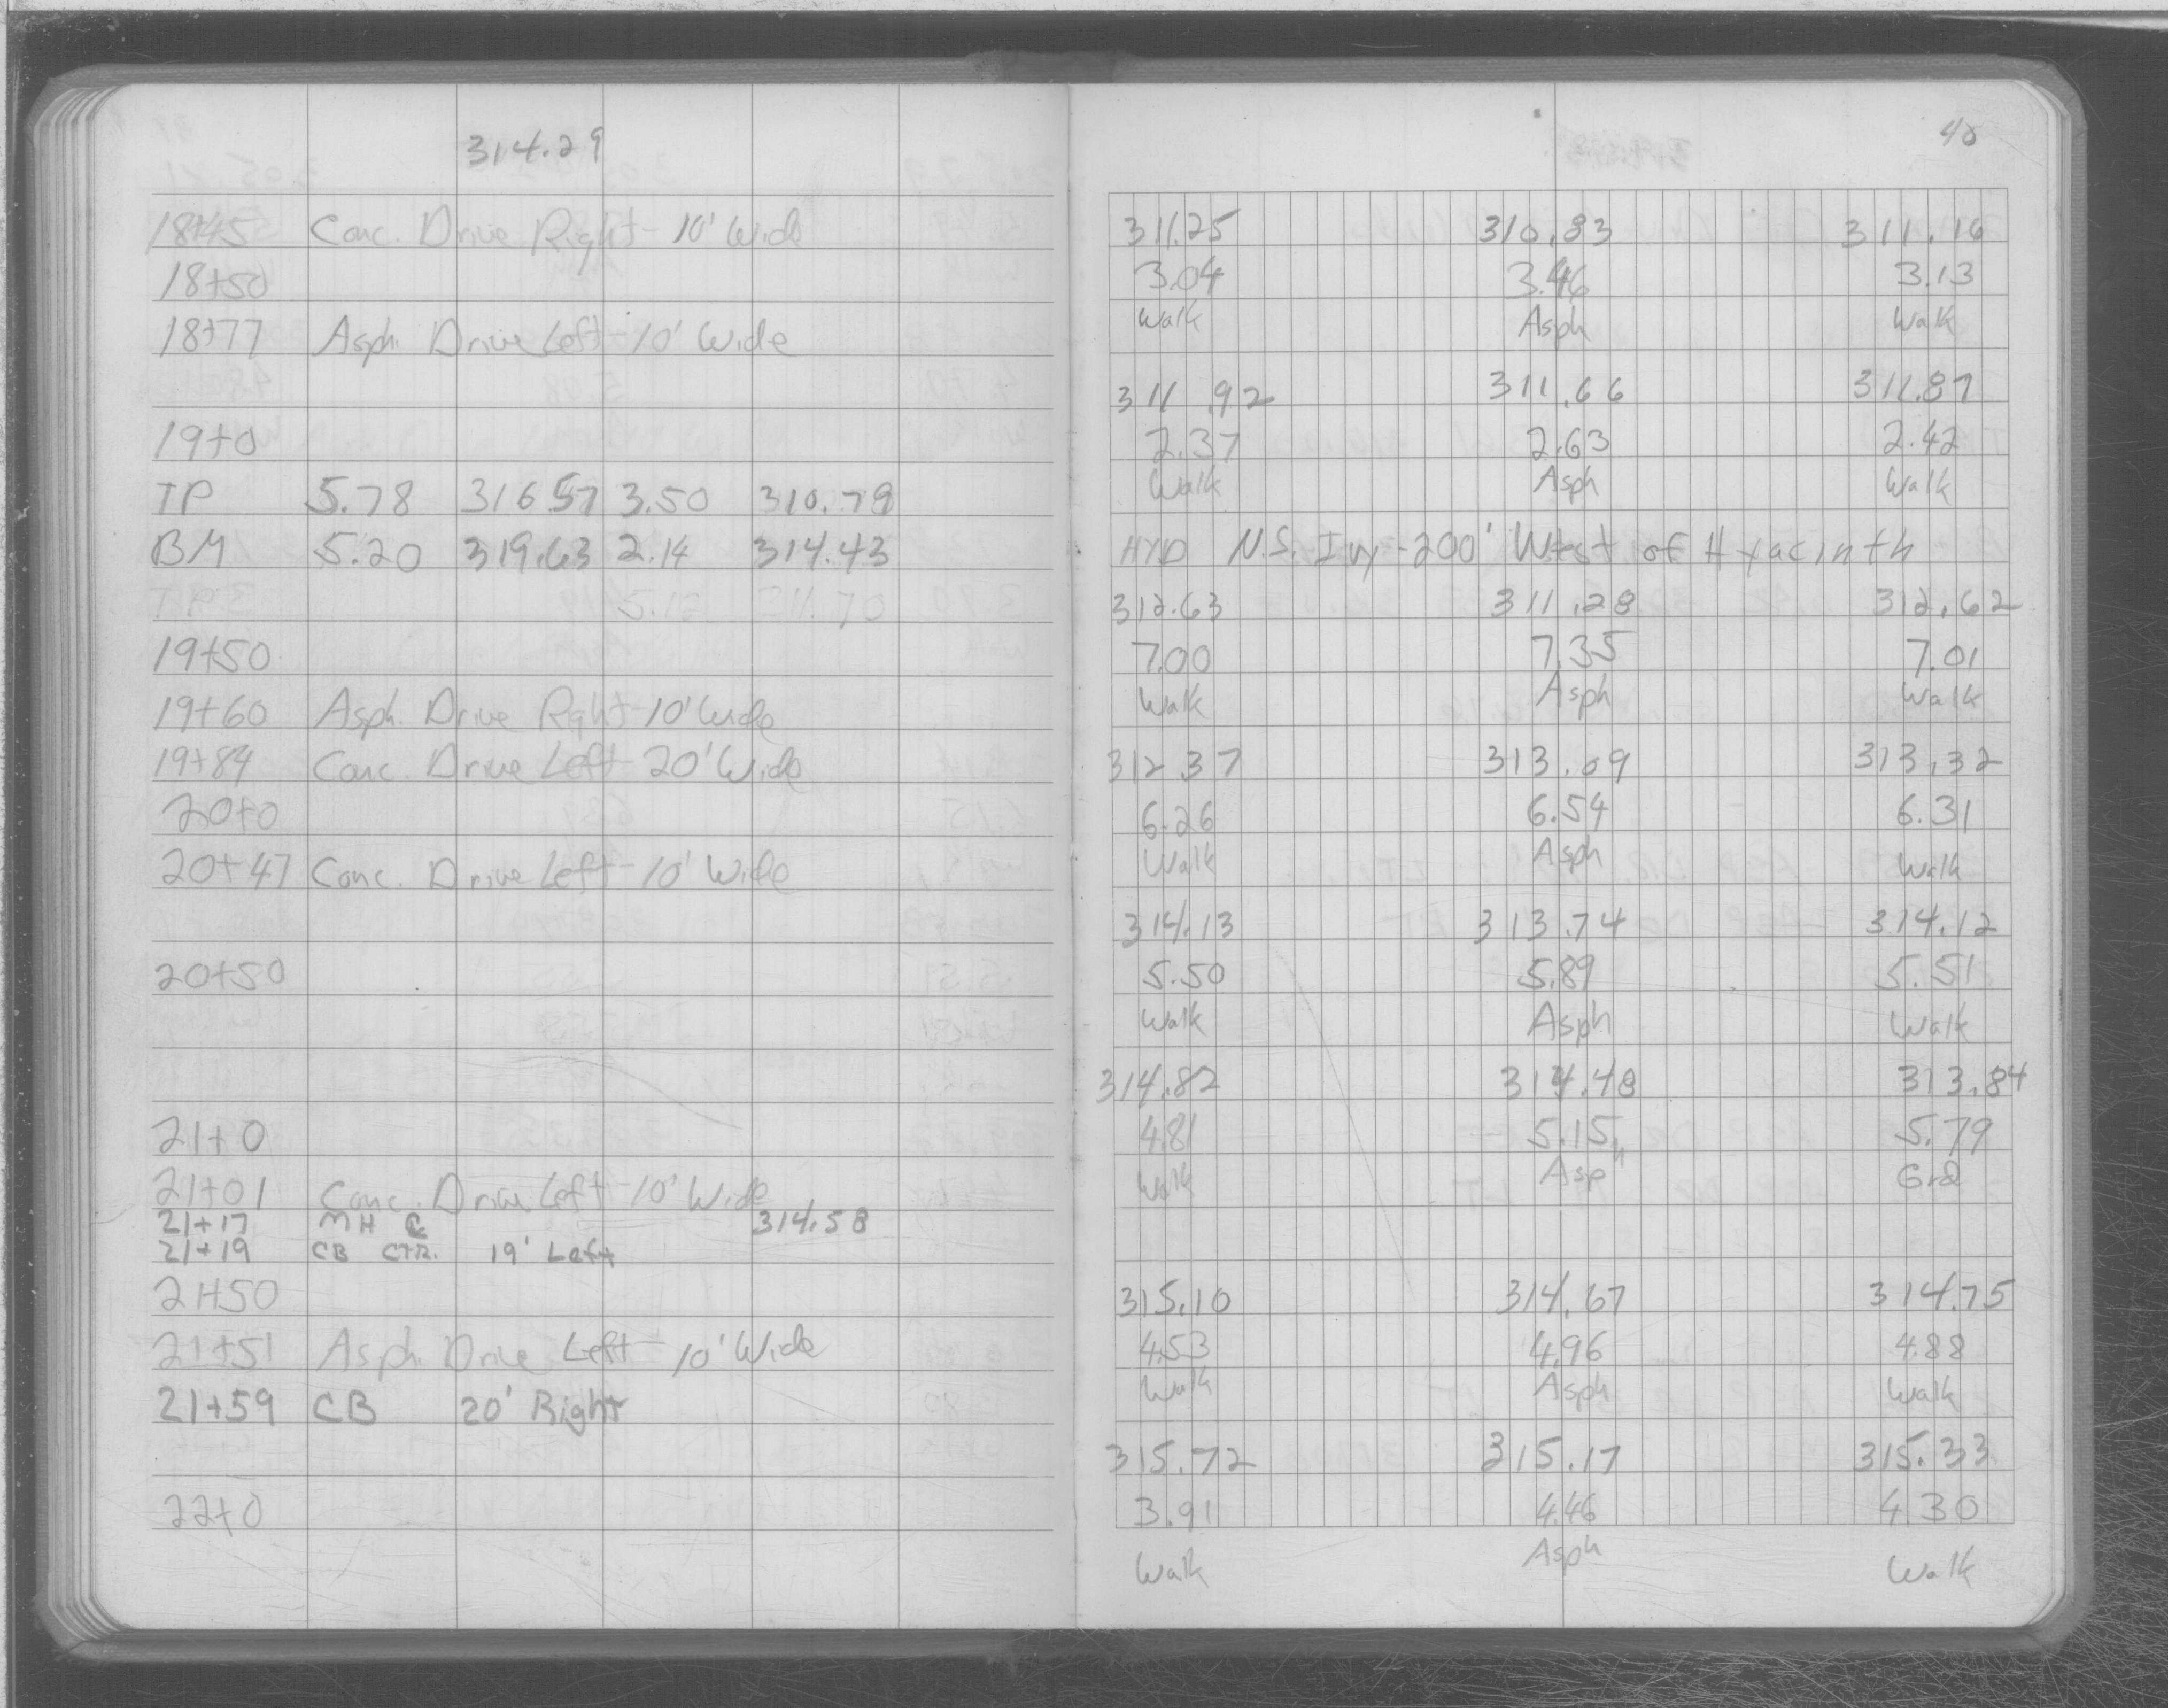 314.29
18+45 Conc. Drive Right - 10' Wide
18+50
18+77 Asph. Drive Left - 10' Wide
19+0
TP 5.78 316.57 3.50 310.79
BM 5.20 319.63 2.14 314.43
TP 5.12 311.70
19+50
19+60 Asph. Drive Right - 10' Wide
19+84 Conc. Drive Left - 20' Wide
20+0
20+47 Conc. Drive Left - 10' Wide
20+50
21+0
21+01 Conc. Drive Left - 10' Wide
21+17 MH ℄ 314.58
21+19 CB CTR. 19' Left
21+50
21+51 Asph. Drive Left - 10' Wide
21+59 CB 20' Right
22+0
40
311.25 310.83 311.16
3.04 3.46 3.13
Walk Asph Walk
311.92 311.66 311.87
2.37 2.63 2.42
Walk Asph Walk
HYD N.S. Ivy - 200' West of Hyacinth
312.63 311.28 312.62
7.00 7.35 7.01
Walk Asph Walk
312.37 313.09 313.32
6.26 6.54 6.31
Walk Asph Walk
314.13 313.74 314.12
5.50 5.89 5.51
Walk Asph Walk
314.82 314.48 313.84
4.81 5.15 5.79
Walk Asph Grd
315.10 314.67 314.75
4.53 4.96 4.88
Walk Asph Walk
315.72 315.17 315.33
3.91 4.46 4.30
Walk Asph Walk